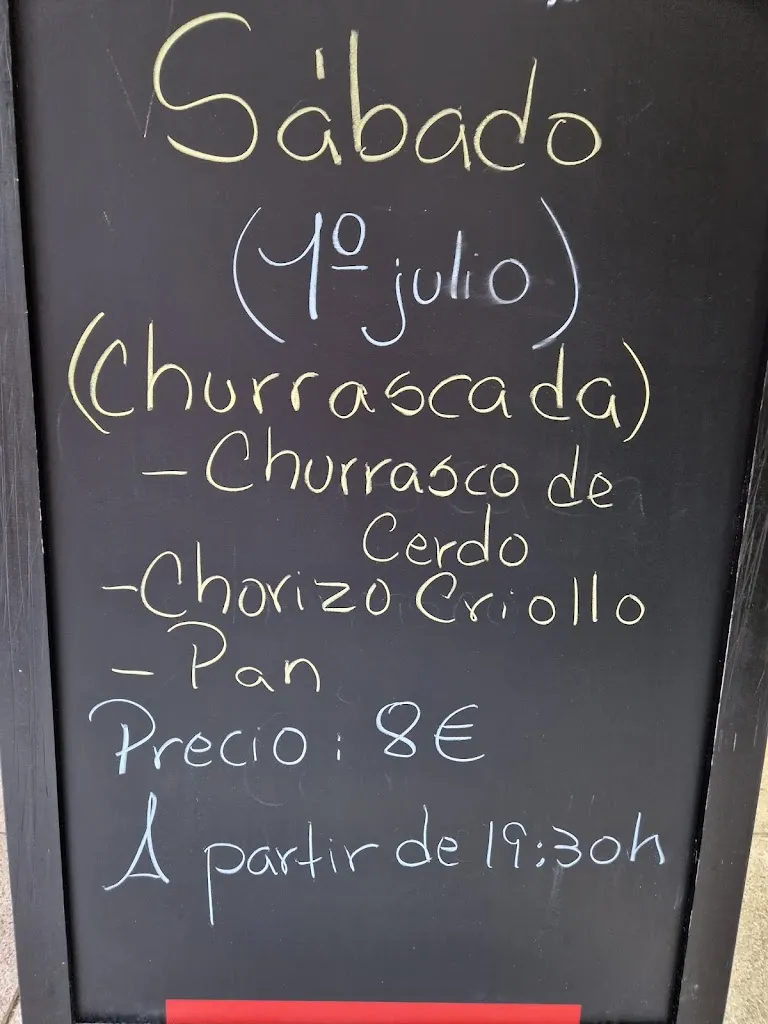 Sábado
(1º julio)
(Churrascada)
- Churrasco de
Cerdo
- Chorizo Criollo
- Pan
Precio: 8€
A partir de 19:30h